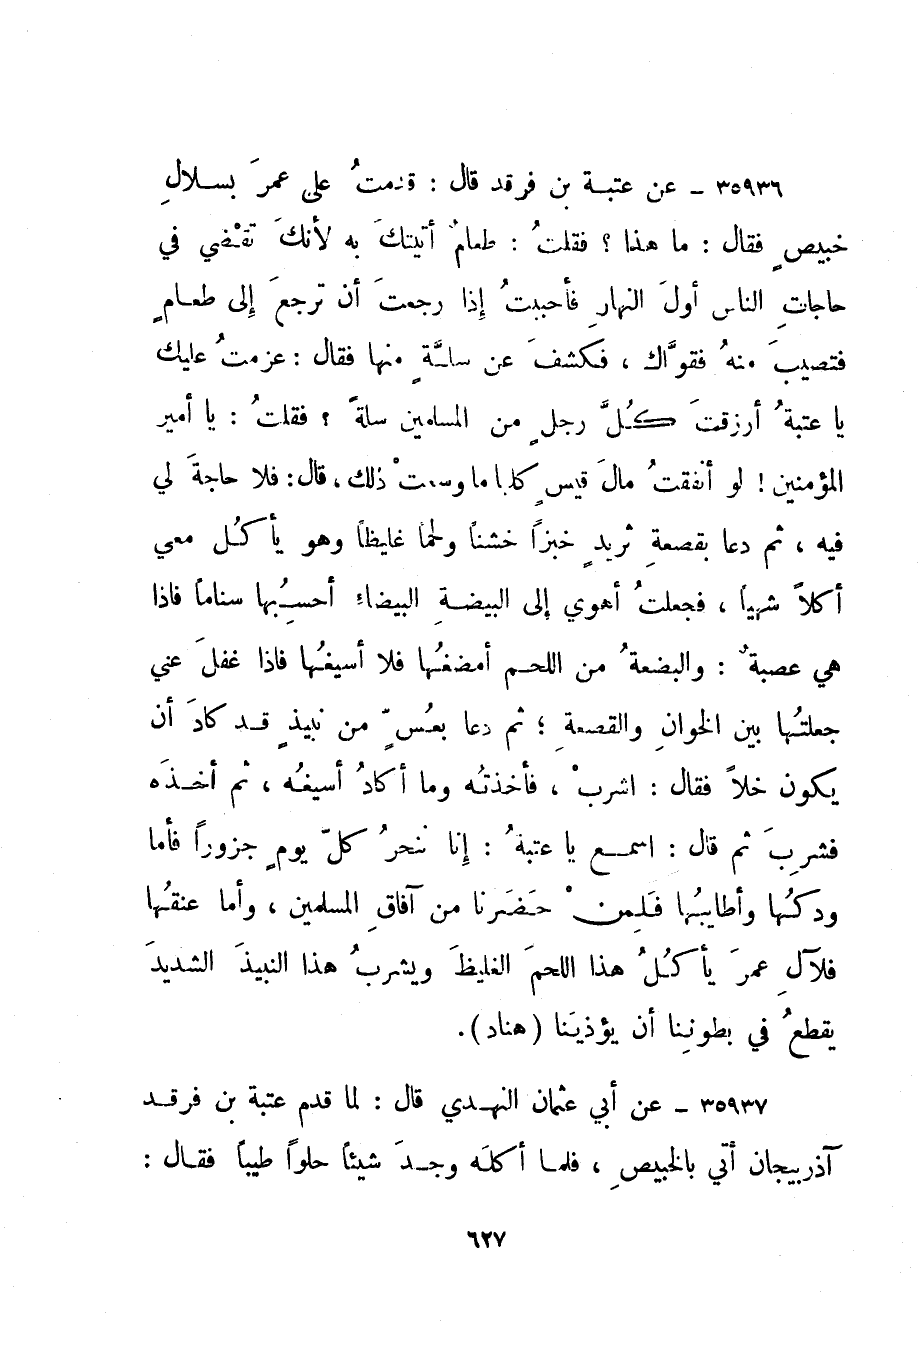 ٣٥٩٣٦ ـ عن عتبة بن فرقد قال : قدمتُ على عمرَ بسلالِ
خبيصٍ فقال : ما هذا ؟ فقلتُ : طعامٌ أتيتكَ به لأنكَ تقْضي في
حاجاتِ الناس أولَ النهارِ فأحببتُ إذا رجعتَ أن ترجعَ إلى طعامٍ
فتصيبَ منهُ فقوَّاك ، فكشفَ عن سلَّةٍ منها فقال : عزمتُ عليك
يا عتبةُ أرزقتَ كُلَّ رجلٍ من المسلمين سلةً ؟ فقلتُ : يا أمير
المؤمنين ! لو أنفقتُ مالَ قيسٍ كلها ما وسعتْ ذلك ، قال : فلا حاجةَ لي
فيه ، ثم دعا بقصعةِ ثريدٍ خبزاً خشناً ولحماً غليظاً وهو يأكُل معي
أكلاً شهياً ، فجعلتُ أهوي إلى البيضةِ البيضاءِ أحسِبُها سناماً فاذا
هي عصبةٌ : والبضعةُ من اللحم أمضغُها فلا أسيغُها فاذا غفلَ عني
جعلتُها بين الخوانِ والقصعةِ ؛ ثم دعا بعُسٍّ من نبيذٍ قد كادَ أن
يكون خلاً فقال : اشربْ ، فأخذتُه وما أكادُ أسيغُه ، ثم أخذَه
فشربَ ثم قال : اسمع يا عتبةُ : إنا ننحرُ كلّ يومٍ جزوراً فأما
ودكُها وأطايبُها فَلِمنْ حَضَرنا من آفاقِ المسلمين ، وأما عنقُها
فلآلِ عمرَ يأكُلُ هذا اللحمَ الغليظَ ويشربُ هذا النبيذَ الشديدَ
يقطعُ في بطونِنا أن يؤذيَنا (هناد).
٣٥٩٣٧ ـ عن أبي عثمان النهدي قال : لما قدم عتبة بن فرقد
آذربيجان أتي بالخبيصِ ، فلما أكلَه وجدَ شيئاً حلواً طيباً فقال :
٦٢٧